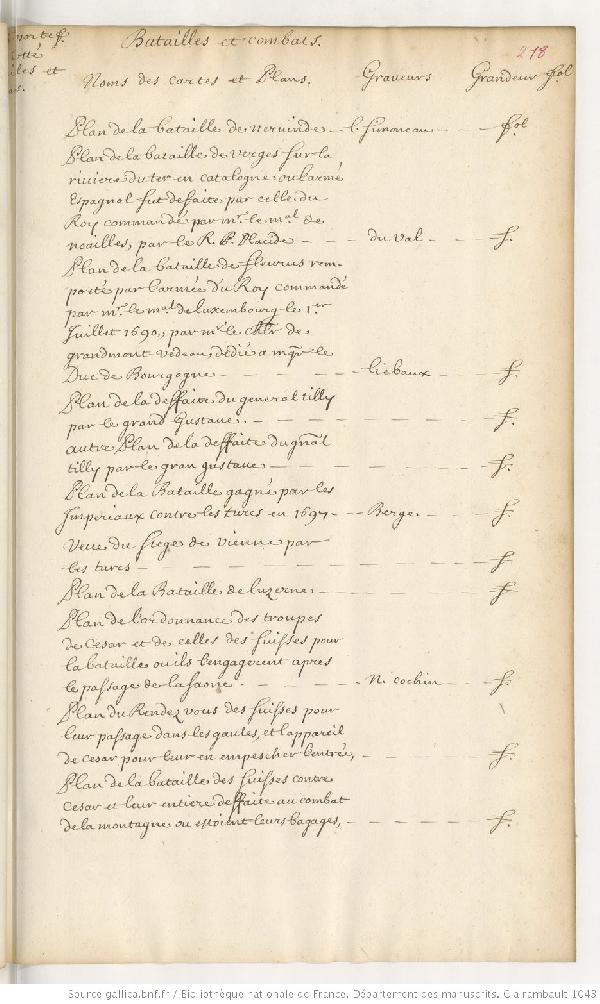 Batailles et combats.
218
Noms des cartes et Plans. Graveurs Grandeur fol
Plan de la bataille de nervinde - l. Simoneau - - fol
Plan de la bataille de verges sur la
riviere du ter en catalogne ou larmé
Espagnol fut defaite par celle du
Roy commandé par mr. le mal. de
noailles, par le R. P. Placide - - - du val - - f.
Plan de la bataille de fleurus rem-
porté par larmée du Roy commandé
par mr. le mal. de luxembourg le 1er
Juillet 1690, par mr le chlr de
grandmont vedeau, dédié a mgr le
Duc de Bourgogne - - - liebaux - - f.
Plan de la deffaite du general tilly
par le grand Gustave. - - - - f.
autre Plan de la deffaite du gnal
tilly par le gran gustave - - - - f.
Plan de la Bataille gagné par les
Imperiaux contre les turcs en 1697 - - Berge. - - f.
Veue du siege de vienne par
les turcs - - - - f
Plan de la Bataille de luzerne - - - - f.
Plan de l'ordonnance des troupes
de Cesar et de celles des suisses pour
la bataille ou ils s'engagerent apres
le passage de la saone. - - - N. cochin - - f.
Plan du Rendez vous des suisses pour
leur passage dans les gaules, et lappareil
de cesar pour leur en empescher lentrée, - - - f.
Plan de la bataille des suisses contre
Cesar et leur entiere deffaite au combat
de la montagne ou estoient leurs bagages, - - - f.
Source gallica.bnf.fr / Bibliothèque nationale de France. Département des manuscrits. Clairambault 1043